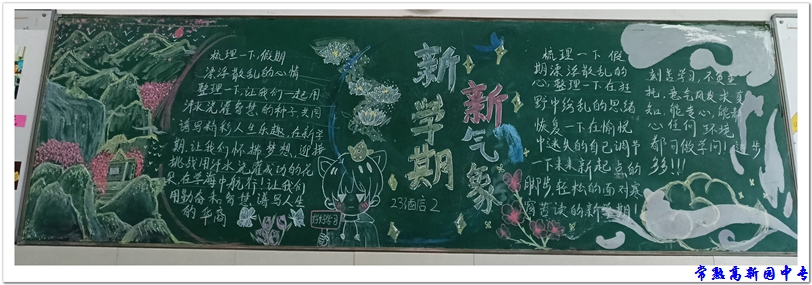 梳理一下,假期
漂浮散乱的心情
整理一下,让我们一起用
汗水浇灌智慧的种子,共同
谱写精彩人生乐趣,在新学
期,让我们怀揣梦想,迎接
挑战用汗水浇灌成功的花
果,在学海中航行!让我们
用勤奋和智慧谱写人生
的华商
新学期
新气象
23酒店2
梳理一下假
期漂浮散乱的
心,整理一下在狂
野中纷乱的思绪
恢复一下在愉悦
中迷失的自己,调节
一下未来新起点的
脚步轻松的面对寒
窗苦读的新学期!
刻苦学习,不负重
托,意气风发求真
知,能专心,能静
心任何环境
都可做学问,进步
多!!!
常熟高新园中专